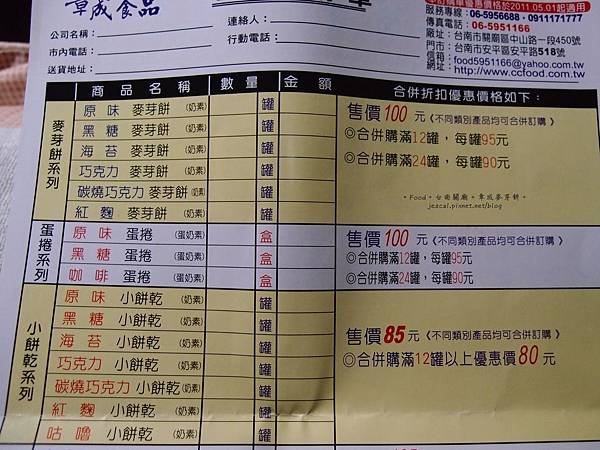 章成食品
單
訂購單優惠價格於2011.05.01起適用
服務專線：06-5956688．0911171777
傳真電話：06-5951166
廠址：台南市關廟區中山路一段450號
門市：台南市安平區安平路518號
信箱：food5951166@yahoo.com.tw
網址：http://www.ccfood.com.tw
公司名稱：
聯絡人：
市內電話：
行動電話：
送貨地址：
商品名稱 數量 金額 合併折扣優惠價格如下：
麥芽餅系列
原味 麥芽餅 (奶素) 罐
黑糖 麥芽餅 (奶素) 罐
海苔 麥芽餅 (奶素) 罐
巧克力 麥芽餅 (奶素) 罐
碳燒巧克力 麥芽餅 (奶素) 罐
紅麴 麥芽餅 (奶素) 罐
售價100元《不同類別產品均可合併訂購》
◎合併購滿12罐，每罐95元
◎合併購滿24罐，每罐90元
◦Food◦台南關廟◦章成麥芽餅◦
jescal.pixnet.net/blog
蛋捲系列
原味 蛋捲 (蛋奶素) 盒
黑糖 蛋捲 (蛋奶素) 盒
咖啡 蛋捲 (蛋奶素) 盒
售價100元《不同類別產品均可合併訂購》
◎合併購滿12罐，每罐95元
◎合併購滿24罐，每罐90元
小餅乾系列
原味 小餅乾 (奶素) 罐
黑糖 小餅乾 (奶素) 罐
海苔 小餅乾 (奶素) 罐
巧克力 小餅乾 (奶素) 罐
碳燒巧克力 小餅乾 (奶素) 罐
紅麴 小餅乾 (奶素) 罐
咕嚕 小餅乾 (奶素) 罐
售價85元《不同類別產品均可合併訂購》
◎合併購滿12罐以上優惠價80元